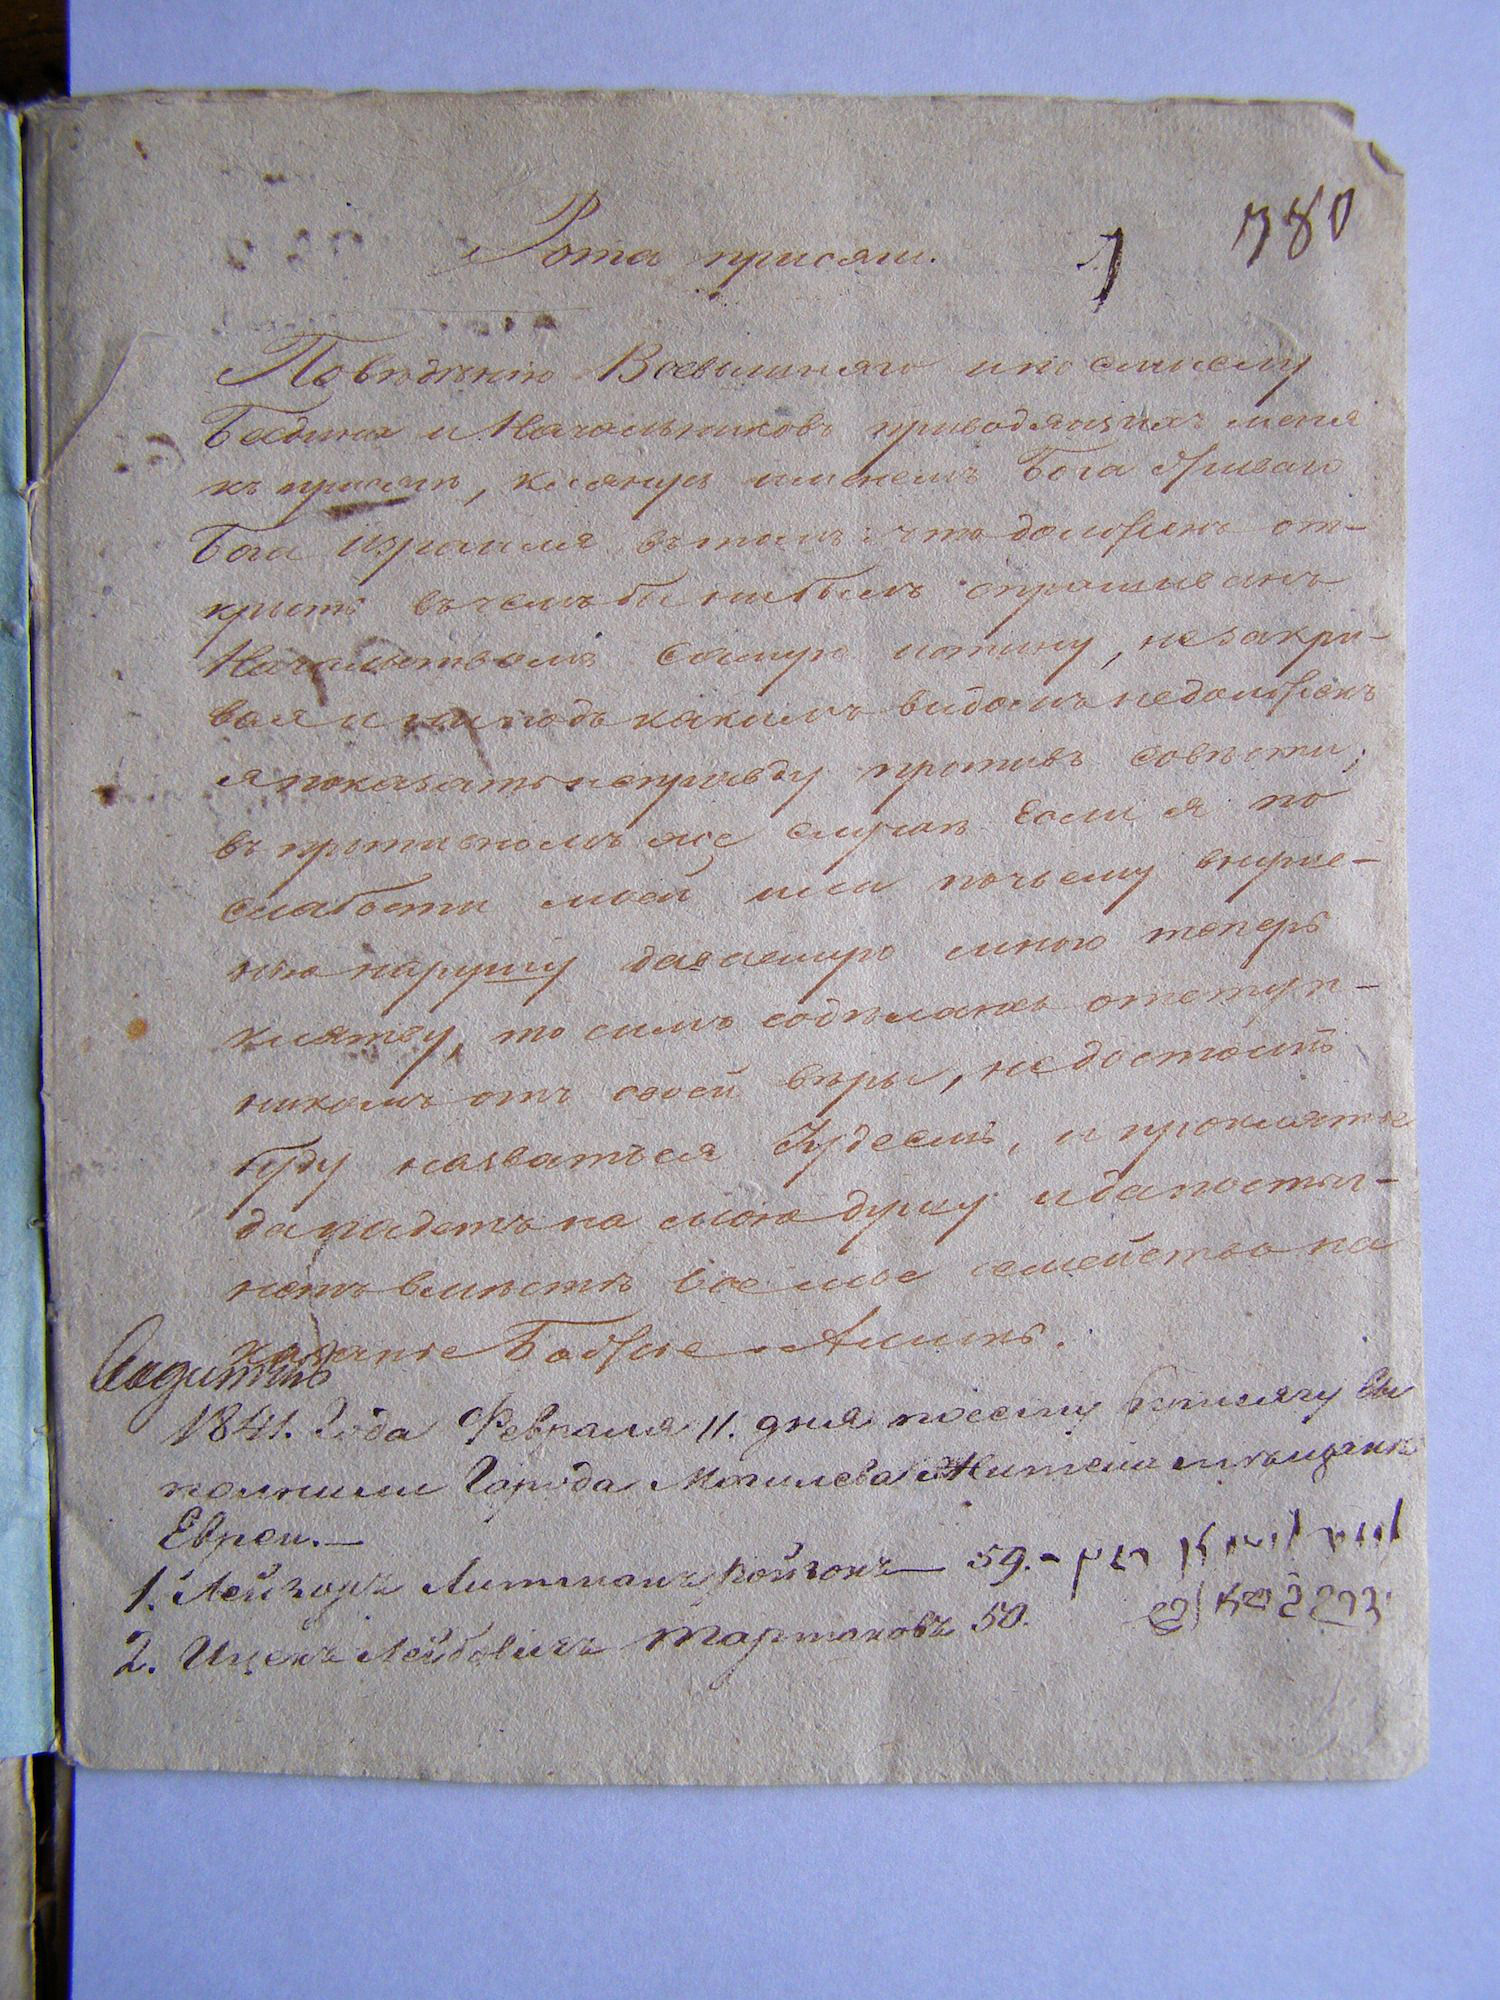 780
1
Рота присяги.
Поведению Всевышняго и по смыслу
Беsдина и Начальниковъ приводящихъ меня
къ присягѣ, клянусь именемъ Бога Живаго
Бога Израиля въ томъ: что долженъ от-
крыть въ чемъ бы ни былъ спрашиванъ
Начальствомъ самую истину, не закры-
вая и ни подъ какимъ видомъ не долженъ
я показать неправду противъ совѣсти;
въ противномъ же случаѣ Если я по
слабости моей или почьему внуше-
нію нарушу даваемую мною теперь
клятву, то симъ содѣлаюсь отступ-
никомъ отъ своей вѣры, недостоинъ
буду назваться Іудеемъ, и проклятіе
да падетъ на мою душу и да постыг-
нетъ вмѣстѣ все мое семейство на
казаніе Божіе Аминь.
1841. Года Февраля 11. дня посему присягу вы
полнили Города Могилева Жители мѣщане
Евреи.—
1. Лейзоръ Литманъ Ройзонъ — 59. -
2. Ицекъ Лейбовичъ Тартаковъ 50.